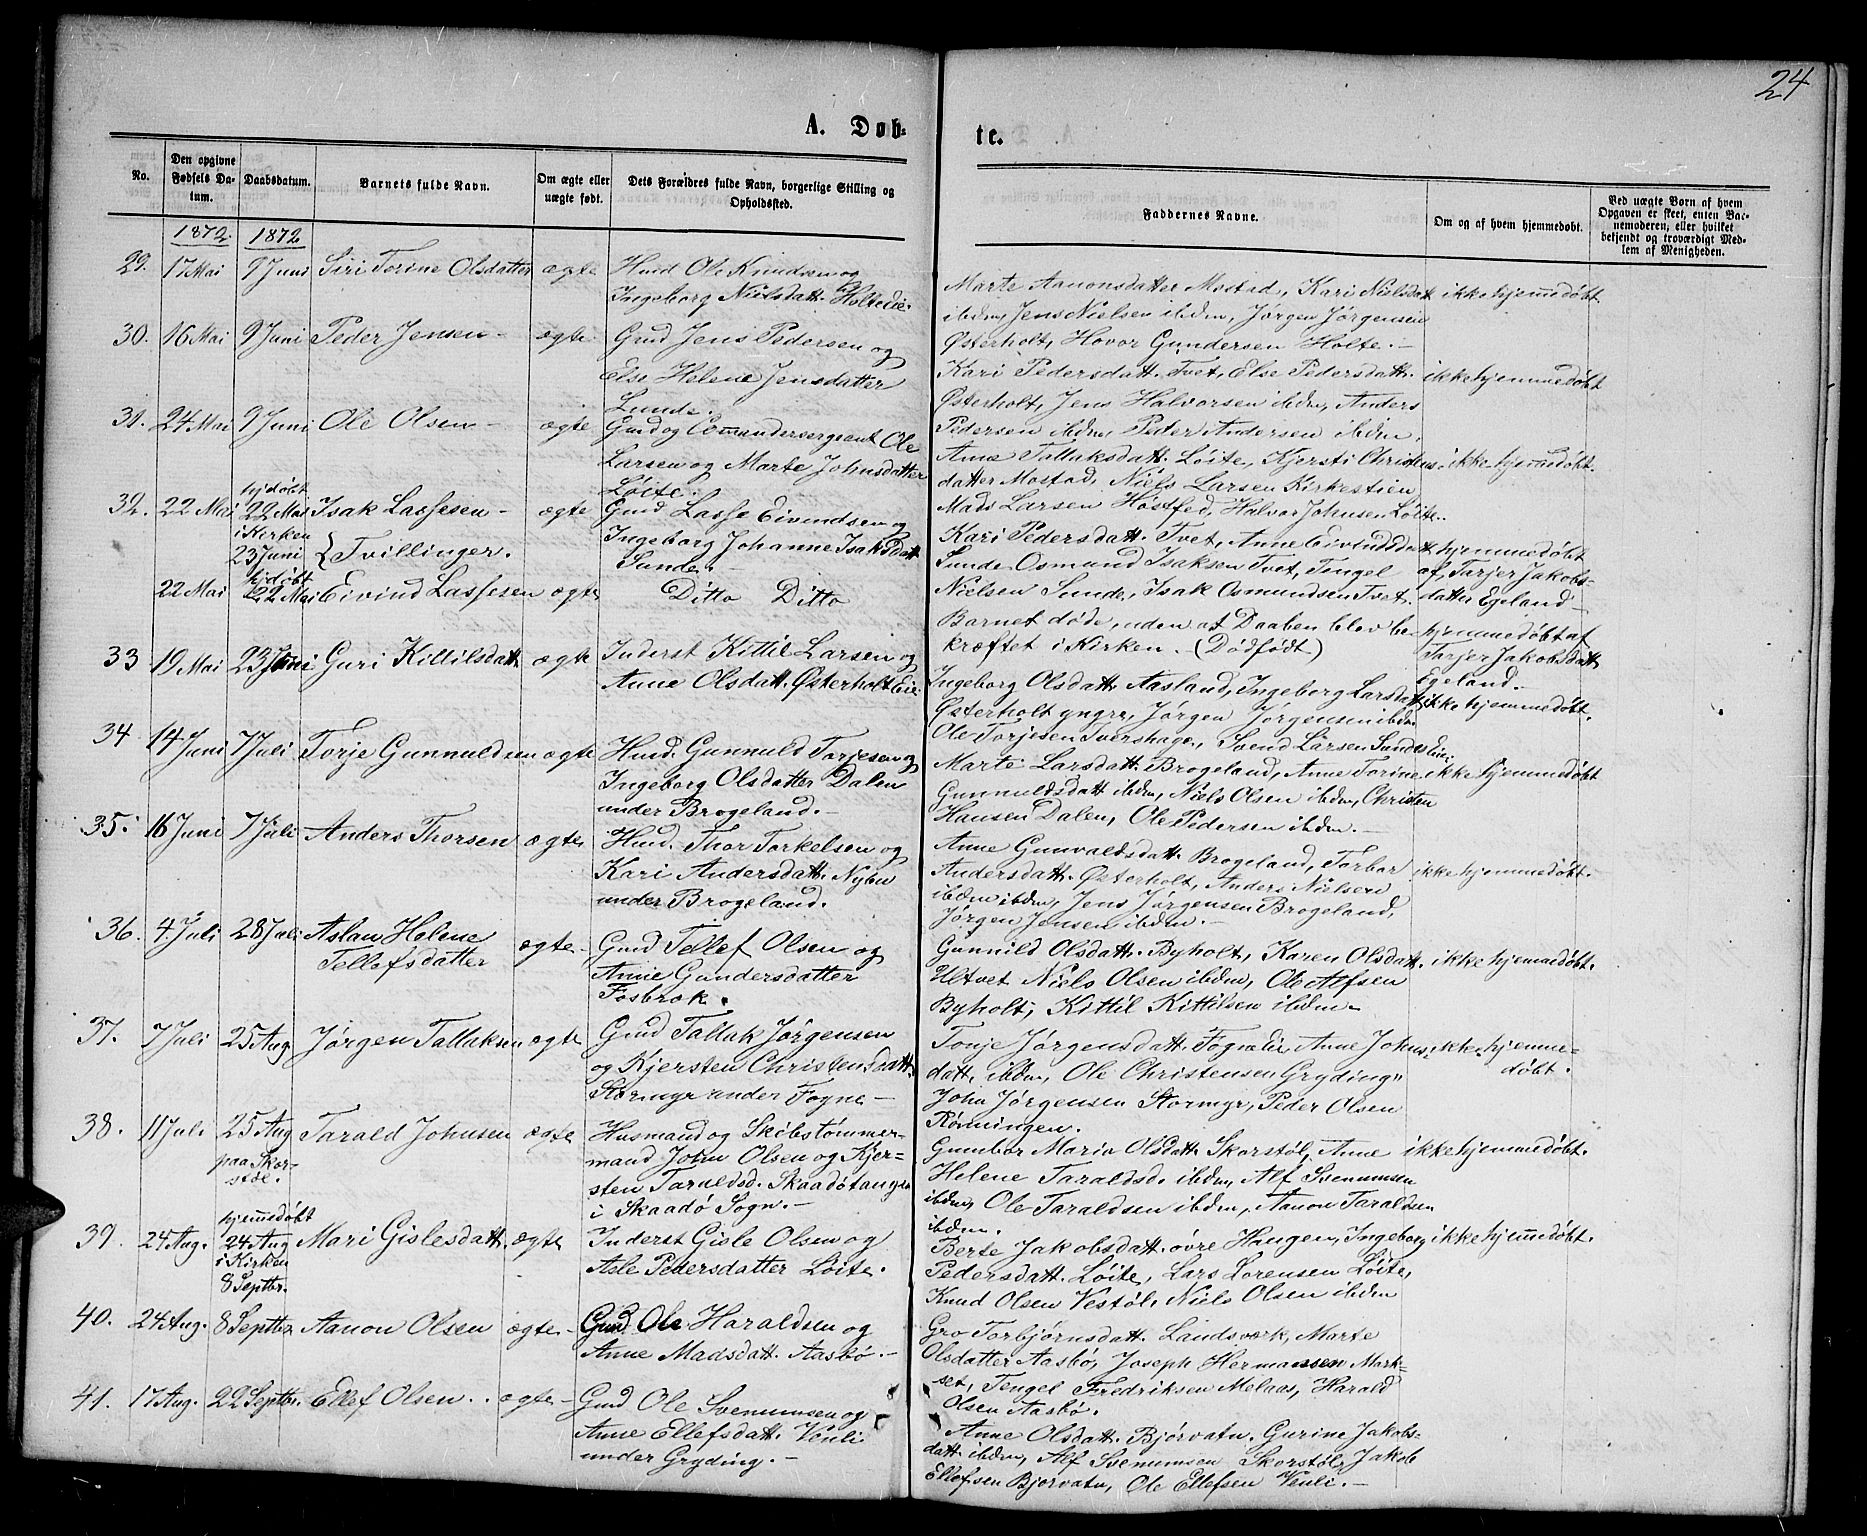 24
A. Døb-
te.
No.
Den opgivne Fødsels Datum.
Daabsdatum.
Barnets fulde Navn.
Om ægte eller uægte født.
Dets Forældres fulde Navn, borgerlige Stilling og Opholdssted.
Faddernes Navne.
Om og af hvem hjemmedøbt.
Ved uægte Børn af hvem Opgaven er skeet, enten Barnemoderen, eller hvilket bekjendt og troværdigt Medlem af Menigheden.
1872. 1872
29. 17 Mai 9 Juni Siri Torine Olsdatter ægte
Husd Ole Knudsen og
Ingeborg Nielsdatt. Holteeie.
Marte Aanonsdatter Mostad, Kari Nielsdatt ikke hjemedøbt.
ibdm, Jens Nielsen ibdm, Jørgen Jørgensen
Østerholt, Hovor Gundersen Holte.
30. 16 Mai 9 Juni Peder Jensen ægte
Gmd Jens Pedersen og
Else Helene Jensdatter
Lunde.
Kari Pedersdatt. Tvet, Else Pedersdatt. ikke hjemmedøbt
Østerholt, Jens Halvorsen ibdm, Anders
Pedersen ibdm, Peder Andersen ibdm.
31. 24 Mai 9 Juni Ole Olsen ægte
Gmd og Comandersergeant Ole
Larsen og Marte Johnsdatter
Løite.
Anne Tallaksdatt. Løite, Kjersti Christens- ikke hjemmedøbt.
datter Mostad, Niels Larsen Kirkestien
Mads Larsen Høstfed, Halvor Johnsen Løite.
32. 22 Mai hjdøbt 22 Mai i Kirken 23 Juni Isak Lassesen ægte
{Tvillinger.
Gmd Lasse Eivindsen og
Ingeborg Johanne Isaksdatt
Sunde.
Kari Pedersdatt. Tvet, Anne Eivindsdatt hjemmedøbt
Sunde, Osmund Isaksen Tvet, Tengel af Tarjer Jakobs-
Nielsen Sunde, Isak Osmundsen Tvet. datter Egeland
22 Mai hjdøbt 22 Mai Eivind Lassesen ægte
Ditto Ditto
Barnet døde, uden at Daaben blev be- hjemmedøbt af
kræftet i Kirken. (Dødfødt) Tarjer Jakobsdatt
Egeland.
33 19 Mai 23 Juni Guri Kittilsdatt ægte
Inderst Kittil Larsen og
Anne Olsdatt. Østerholt Eie
Ingeborg Olsdatt. Aasland, Ingeborg Larsdatt ikke hjemmedøbt.
Østerholt yngre, Jørgen Jørgensen ibdm
Ole Torjesen Tvershage, Svend Larsen Sundes Eie.
34 14 Juni 7 Juli Torje Gunnuldsen ægte
Husd. Gunnuld Torjesen og
Ingeborg Olsdatter Dalen
under Brogeland.
Marte Larsdatt. Brogeland, Anne Torine ikke hjemmedøbt
Gunnuldsdatt ibdm, Niels Olsen ibdm, Christen
Hansen Dalen, Ole Pedersen ibdm.
35. 16 Juni 7 Juli Anders Thorsen ægte
Husd. Thor Torkelsen og
Kari Andersdatt. Nybu
under Brogeland.
Anne Gunvaldsdatt. Brogeland, Torbor
Andersdatt. Østerholt, Anders Nielsen ikke hjemmedøbt.
ibdm ibdm, Jens Jørgensen Brogeland,
Jørgen Jensen ibdm.
36. 4 Juli 28 Juli Aslau Helene
Tellefsdatter ægte
Gmd Tellef Olsen og
Anne Gundersdatter
Fosbræk.
Gunnild Olsdatt. Byholt, Karen Olsdatt. ikke hjemmedøbt.
Ultvet Niels Olsen ibdm, Ole Alfsen
Byholt, Kittil Kittilsen ibdm
37. 7 Juli 25 Aug Jørgen Tallaksen ægte
Gmd Tallak Jørgensen
og Kjersten Christensdatt.
Stormyr under Fogne
Tonje Jørgensdatt. Fogne Eie, Anne Johns- ikke hjemme-
datt. ibdm, Ole Christensen Gryding, døbt.
John Jørgensen Stormyr, Peder Olsen
Rønningen.
38. 11 Juli 25 Aug paa Skorstøl. Tarald Johnsen ægte
Husmand og Skibstømmer-
mand John Olsen og Kjer-
sten Taraldsd. Skaadøtangen
i Skaadø Sogn.
Gunbor Maria Olsdatt. Skorstøl, Anne ikke hjemmedøbt.
Helene Taraldsd. ibdm, Alf Svenumsen
ibdm, Ole Taraldsen ibdm, Aanon Taraldsen
ibdm.
39. 24 Aug. hjemedøbt 24 Aug i Kirken 8 Septbr. Mari Gislesdatt. ægte
Inderst Gisle Olsen og
Asle Pedersdatter Løite.
Berte Jakobsdatt. øvre Haugen, Ingeborg ikke hjemedøbt.
Pedersdatt. Løite, Lars Lorensen Løite,
Knud Olsen Vestøl, Niels Olsen ibdm
40. 24 Aug. 8 Septbr Aanon Olsen ægte
Gmd Ole Haraldsen og
Anne Madsdatt. Aasbø.
Gro Torbjørnsdatt. Landsværk, Marte
Olsdatter Aasbø, Joseph Hermansen Mark-
set, Tengel Fredriksen Melaas, Harald
Olsen Aasbø.
41. 17 Aug. 22 Septbr. Ellef Olsen. ægte
Gmd Ole Svenumsen og
Anne Ellefsdatt. Venli
under Gryding.
Anne Olsdatt. Bjørvatn. Gurine Jakobs-
datt. ibdm, Alf Svenumsen Skorstøl, Jakob
Ellefsen Bjorvatn, Ole Ellefsen Venli.